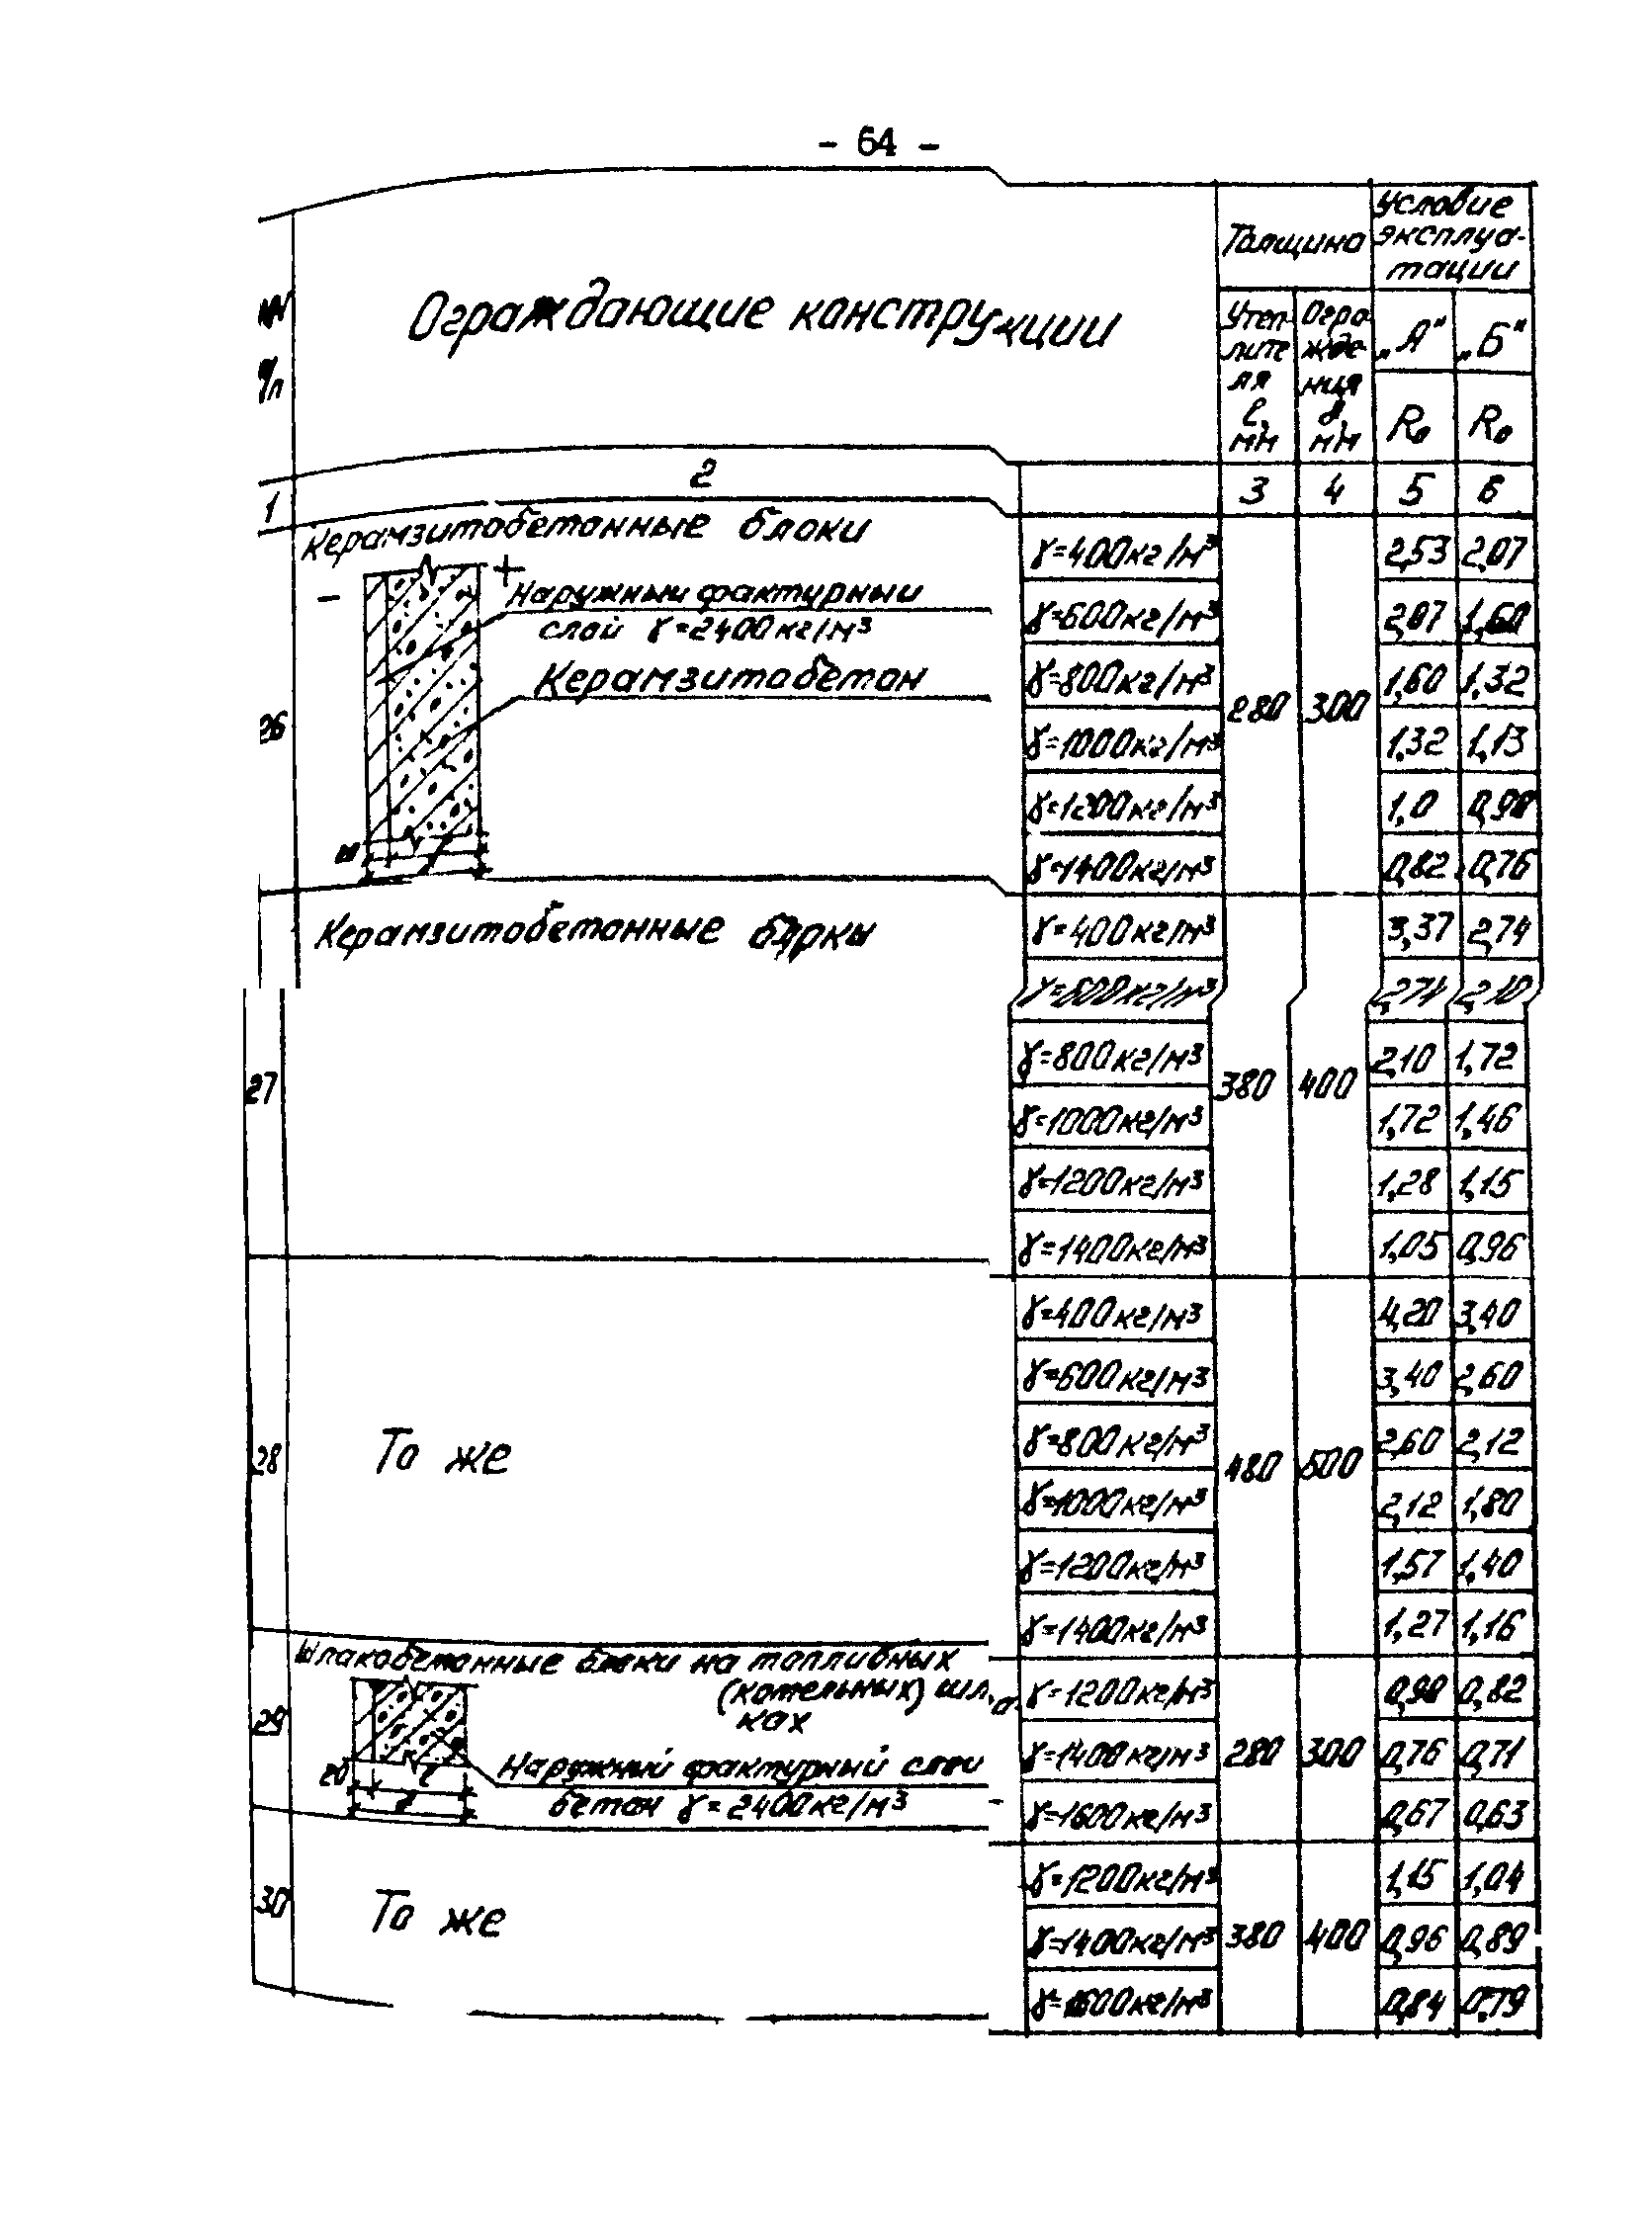 - 64 -
Ограждающие конструкции
Толщина
Условие
эксплуа-
тации
п/п
Утеп-
лите
ля
ℓ,
мм
Огра
жде
ния
δ,
мм
„А"
„Б"
R₀
R₀
1
2
3
4
5
6
26
Керамзитобетонные блоки
+
-
Наружный фактурный
слой γ=2400кг/м³
Керамзитобетон
20
280
300
γ=400кг/м³ 2,53 2,07
γ=600кг/м³ 2,07 1,60
γ=800кг/м³ 1,60 1,32
γ=1000кг/м³ 1,32 1,13
γ=1200кг/м³ 1,0 0,90
γ=1400кг/м³ 0,82 0,76
27
Керамзитобетонные
380
400
γ=400кг/м³ 3,37 2,74
γ=600кг/м³ 2,74 2,10
γ=800кг/м³ 2,10 1,72
γ=1000кг/м³ 1,72 1,46
γ=1200кг/м³ 1,28 1,15
γ=1400кг/м³ 1,05 0,96
28
То же
480
500
γ=400кг/м³ 4,20 3,40
γ=600кг/м³ 3,40 2,60
γ=800кг/м³ 2,60 2,12
γ=1000кг/м³ 2,12 1,80
γ=1200кг/м³ 1,57 1,40
γ=1400кг/м³ 1,27 1,16
29
Шлакобетонные блоки на топливных
(котельных) шла
ках
Наружный фактурный слой
бетон γ=2400кг/м³
20
ℓ
δ
280
300
γ=1200кг/м³ 0,90 0,82
γ=1400кг/м³ 0,76 0,71
γ=1600кг/м³ 0,67 0,63
30
То же
380
400
γ=1200кг/м³ 1,15 1,04
γ=1400кг/м³ 0,96 0,89
γ=1600кг/м³ 0,84 0,79